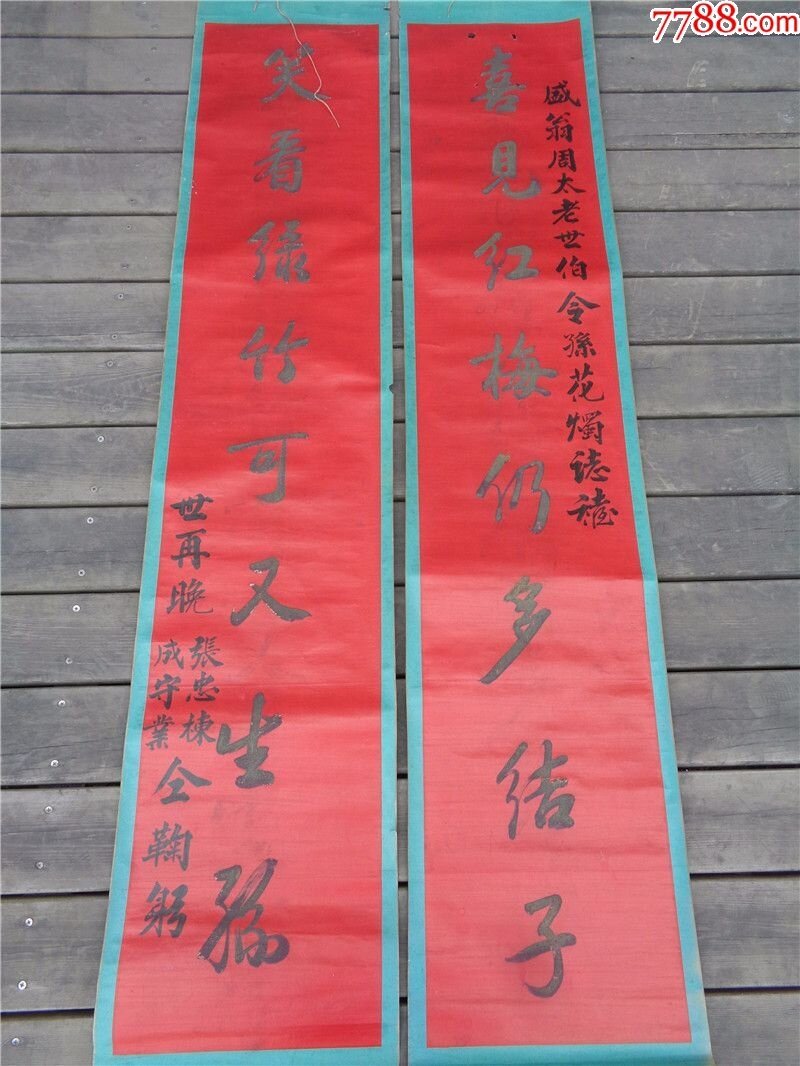 7788.com
盛翁周太老世伯令孫花燭誌禧
喜見红梅仍多结子
笑看绿竹可又生孫
世再晚
張忠棟
成守業
仝鞠躬